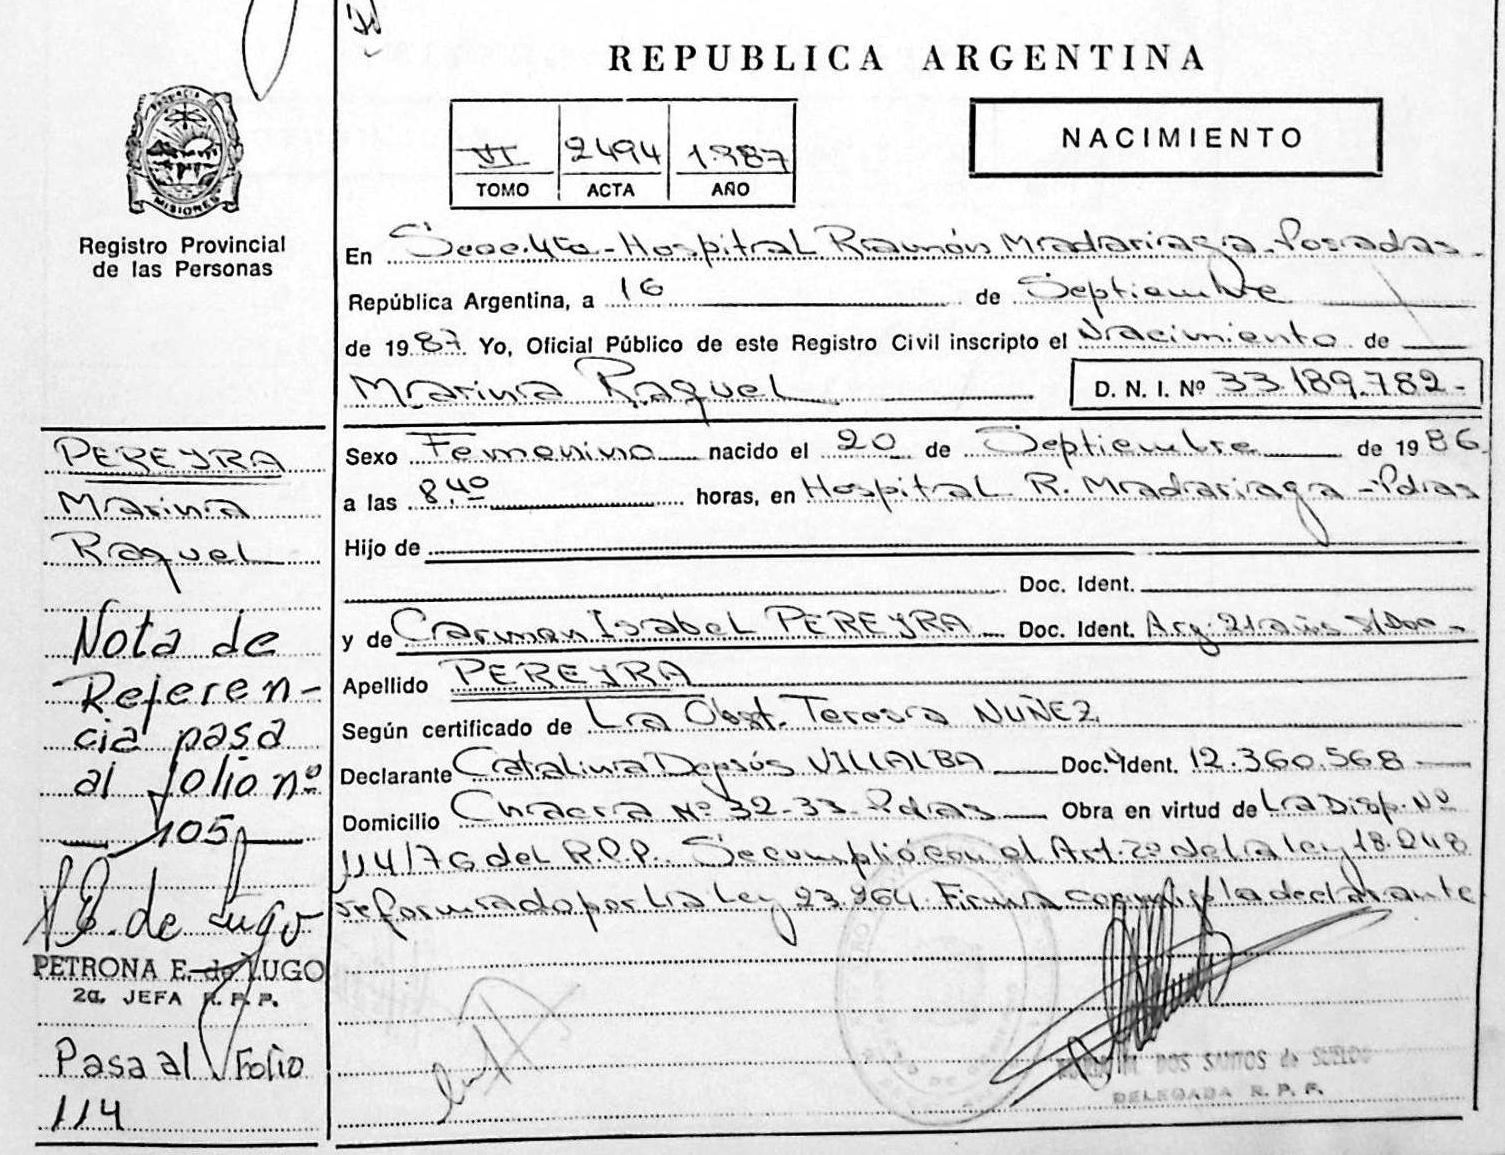 REPUBLICA ARGENTINA
PROVINCIA
MISIONES
Registro Provincial
de las Personas
VI 2494 1.987
TOMO ACTA AÑO
NACIMIENTO
En Secc. 4ta - Hospital Ramón Madariaga - Posadas -
República Argentina, a 16 de Septiembre
de 1987. Yo, Oficial Público de este Registro Civil inscripto el Nacimiento de
Marina Raquel D. N. I. Nº 33.189.782-
Sexo Femenino nacido el 20 de Septiembre de 1986
a las 8,40 horas, en Hospital R. Madariaga - Pdas
Hijo de
Doc. Ident.
y de Carmen Isabel PEREYRA Doc. Ident. Arg. 21 años s/Doc -
Apellido PEREYRA
Según certificado de La Obst. Teresa NUÑEZ
Declarante Catalina VILLALBA Doc. Ident. 12.360.568
Domicilio Chacra Nº 32-33 - Pdas Obra en virtud de La Disp. Nº
114/76 del R.P.P. Se cumplió con el Art. 2º de la ley 18.248
reformado por la Ley 23.264. Firma la declarante
DOS SANTOS de
DELEGADA R. P. P.
PEREYRA
Marina
Raquel
Nota de
Referen-
cia pasa
al folio nº
105
de Lugo
PETRONA E. de LUGO
2a. JEFA R. P. P.
Pasa al Folio
114